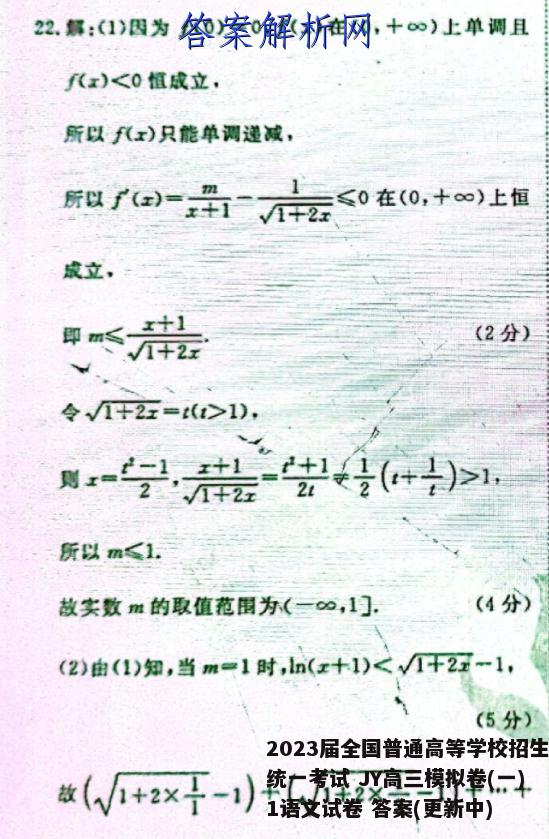 22.解:(1)因为 上单调且
答案解析网
f(x)<0 恒成立,
所以 f(x)只能单调递减,
所以 f'(x)=m/(x+1)-1/√(1+2x)≤0 在(0,+∞)上恒
成立,
即 m≤(x+1)/√(1+2x). (2分)
令√(1+2x)=t(t>1),
则 x=(t²-1)/2,(x+1)/√(1+2x)=(t²+1)/2t=1/2(t+1/t)>1,
所以 m≤1.
故实数 m 的取值范围为(-∞,1]. (4分)
(2)由(1)知,当 m=1 时,ln(x+1)<√(1+2x)-1,
(5分)
2023届全国普通高等学校招生
统一考试 JY高三模拟卷(一)
1语文试卷 答案(更新中)
故(√(1+2×1/1)-1)+